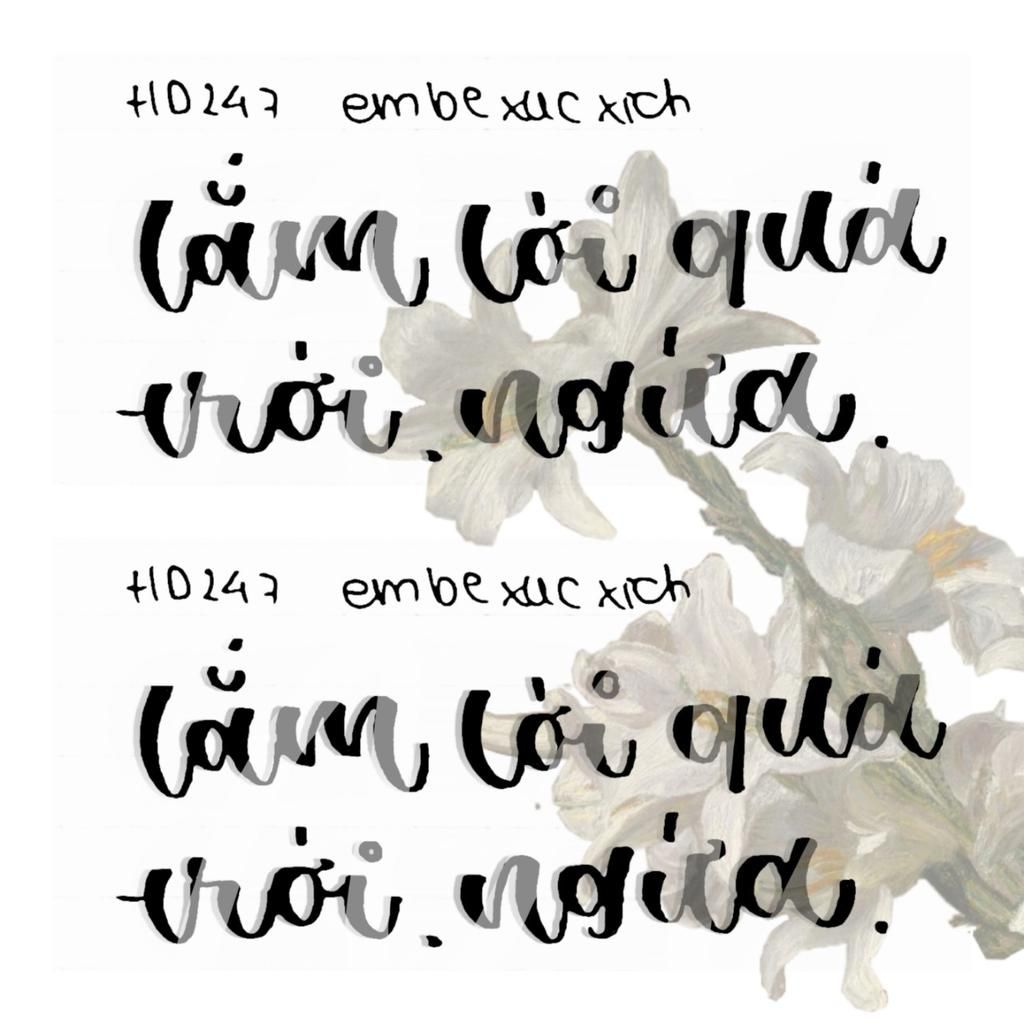 HD247 embexucxich
lắm lời quá
trời. ngứa.
HD247 embexucxich
lắm lời quá
trời. ngứa.